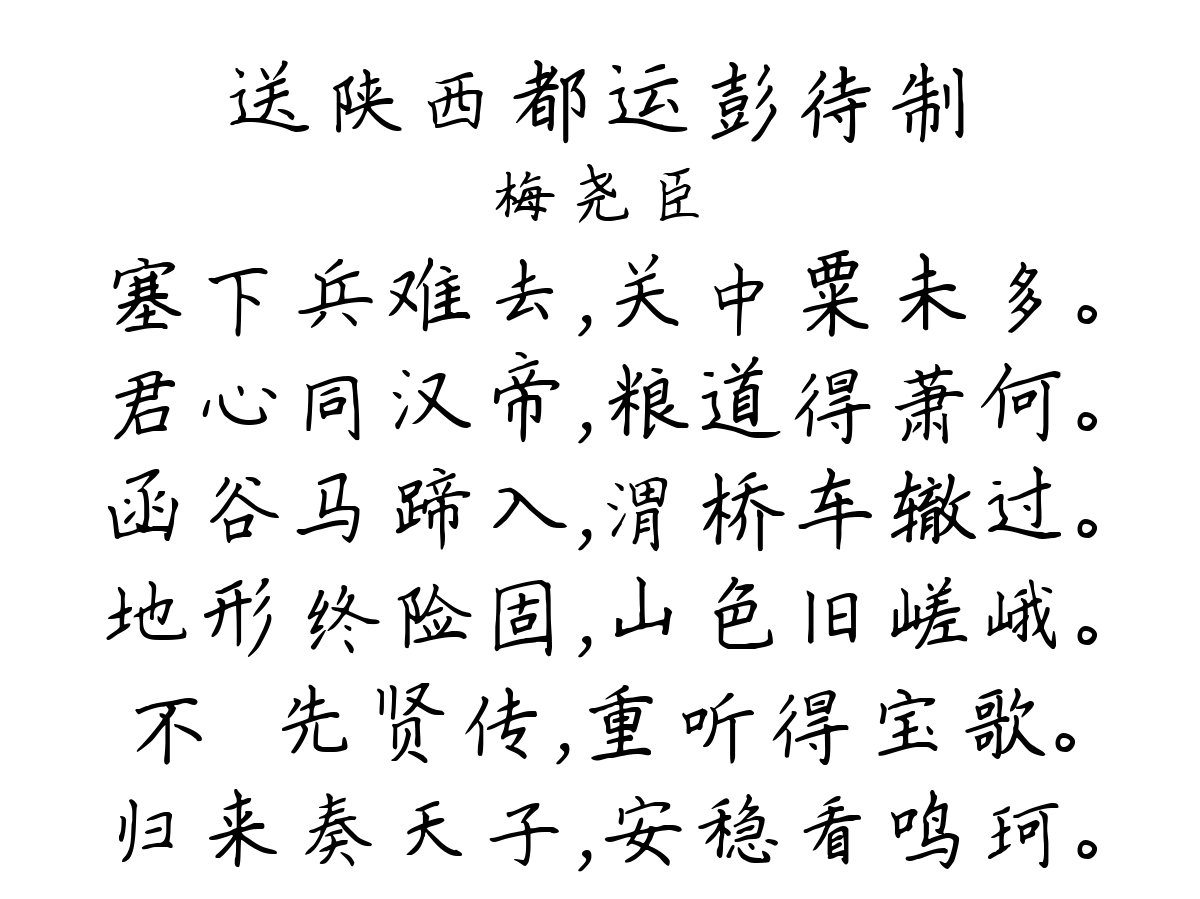 送陕西都运彭待制
梅尧臣
塞下兵难去,关中粟未多。
君心同汉帝,粮道得萧何。
函谷马蹄入,渭桥车辙过。
地形终险固,山色旧嵯峨。
不 先贤传,重听得宝歌。
归来奏天子,安稳看鸣珂。